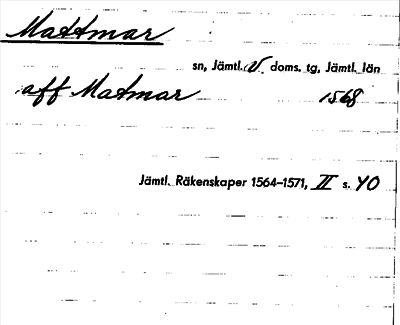 Mattmar
sn, Jämtl. v. doms. tg, Jämtl. län
aff Matmar 1568
Jämtl. Räkenskaper 1564–1571, II s. 40